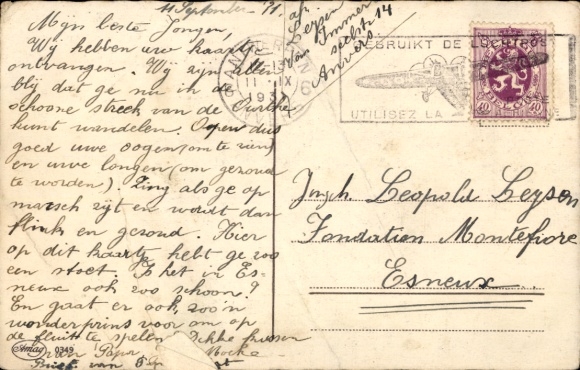 11 September '31.
Mijn beste Jongen,
Wij hebben uw kaartje
ontvangen. Wij zijn allen
blij dat ge nu in de
schoone streek van de Ourthe
kunt wandelen. Open dus
goed uwe oogen (om te zien)
en uwe longen (om gezond
te worden). Zing als ge op
marsch zijt en wordt dan
flink en gezond. Hier
op dit kaartje hebt ge zoo
een stoet. Is het in Es-
neux ook zoo schoon?
En gaat er ook zoo'n
wonderprins voor om op
de fluit te spelen? Dikke kussen
van Papa Moeke
Amag 0349
Brief van
af.
Leysen
Van Immer
seelstr 14
Anvers.
ANTWERPEN 6
11 IX
193
GEBRUIKT DE LUCHTPOST
UTILISEZ LA
40 40
Jngh. Leopold Leysen
Fondation Montefiore
Esneux